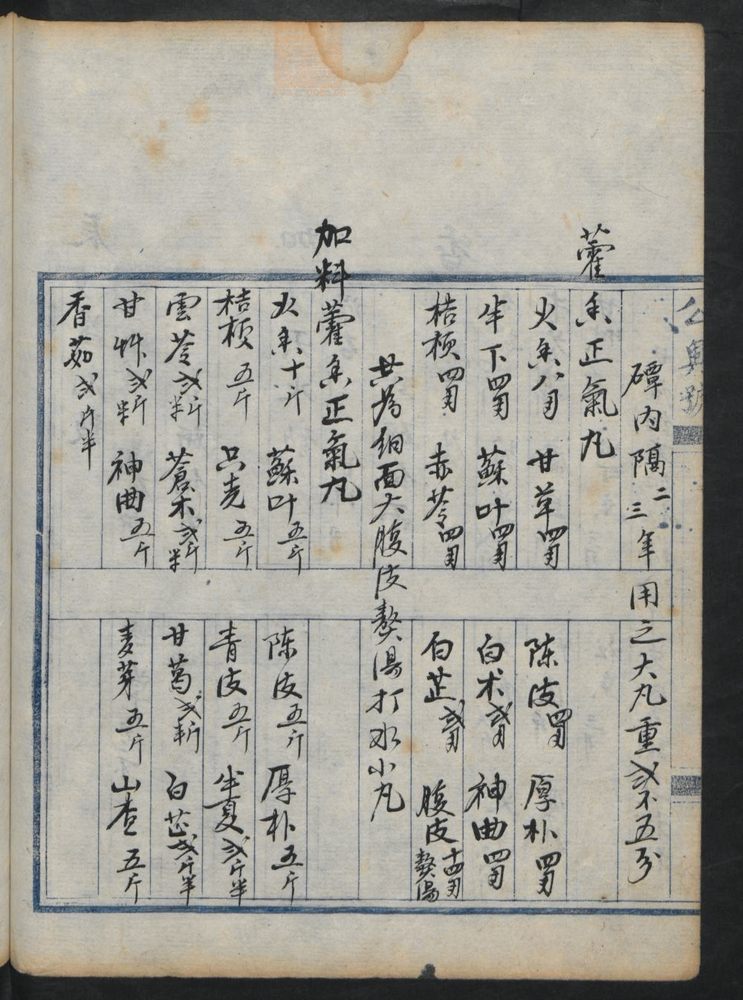 公興號
磹內隔二三年用之大丸重弍不五分
藿香正氣丸
火香八両 甘草四両 陈皮四両 厚朴四両
半下四両 蘇叶四両 白术弍両 神曲四両
桔梗四両 赤苓四両 白芷弍両 腹皮十四両熬湯
共為細面大腹皮熬湯打水小丸
加料藿香正氣丸
火香十斤 蘇叶五斤 陈皮五斤 厚朴五斤
桔梗五斤 只壳五斤 青皮五斤 半夏弍斤半
雲苓弍斤半 蒼术弍斤半 甘葛弍斤 白芷弍斤半
甘艸弍斤半 神曲五斤 麦芽五斤 山查五斤
香茹弍斤半